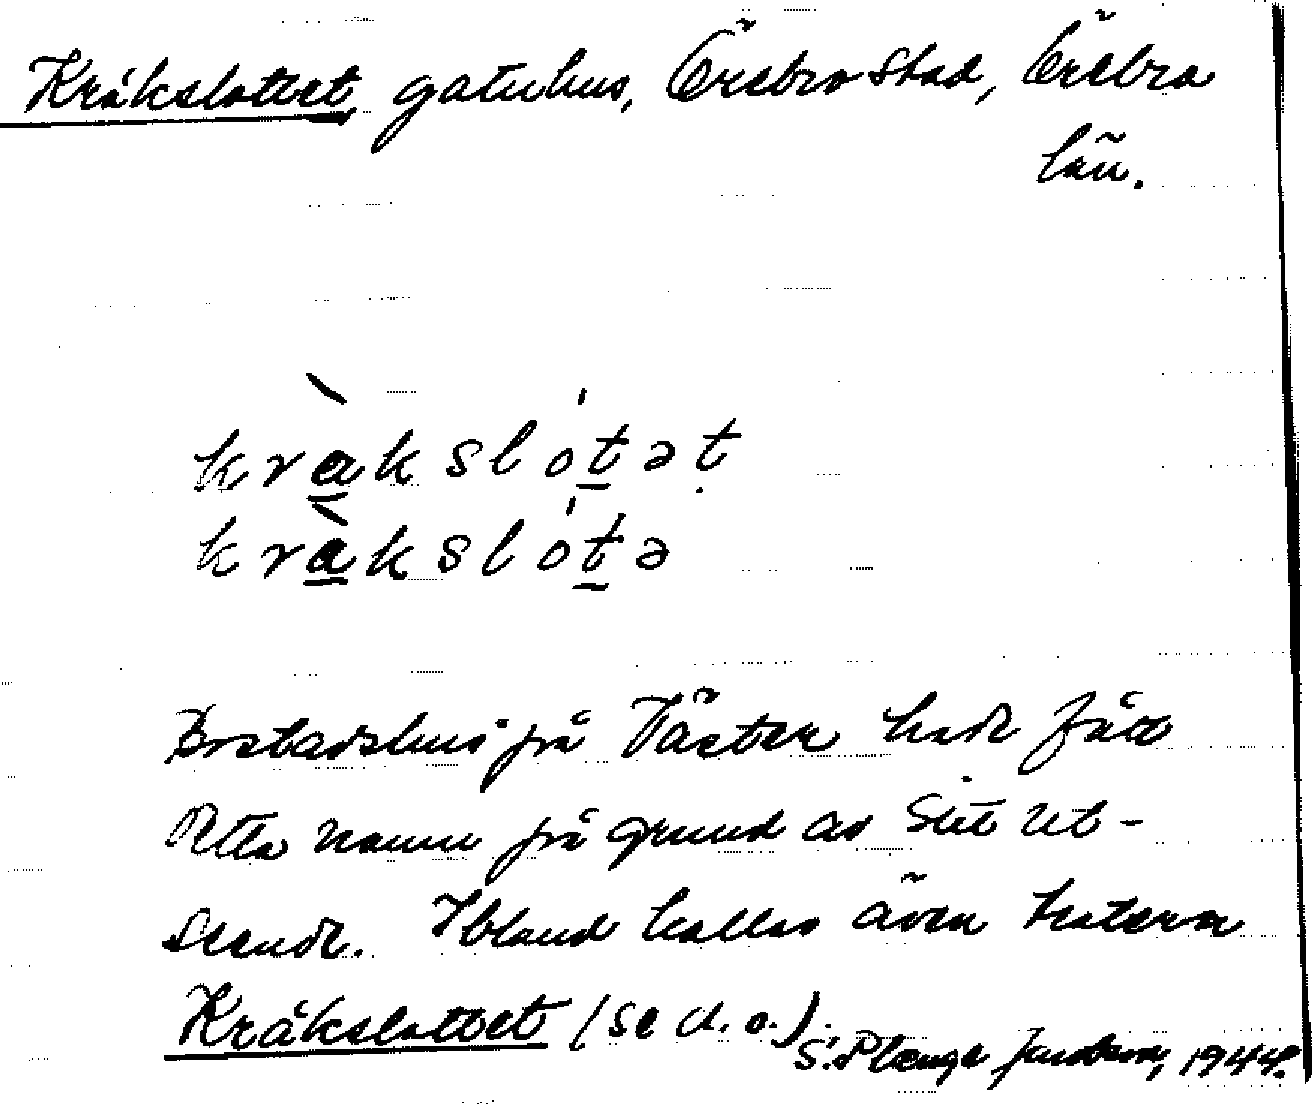 Kråkslottet, gatuhus, Örebro stad, Örebro
län.
kràkslótət
kràkslótə
Bostadshus på Väster hade fått
detta namn på grund av sitt ut-
seende. Ibland kallas även teatern
Kråkslottet (se d.o.).
S. Plenge Jacobson, 1944.